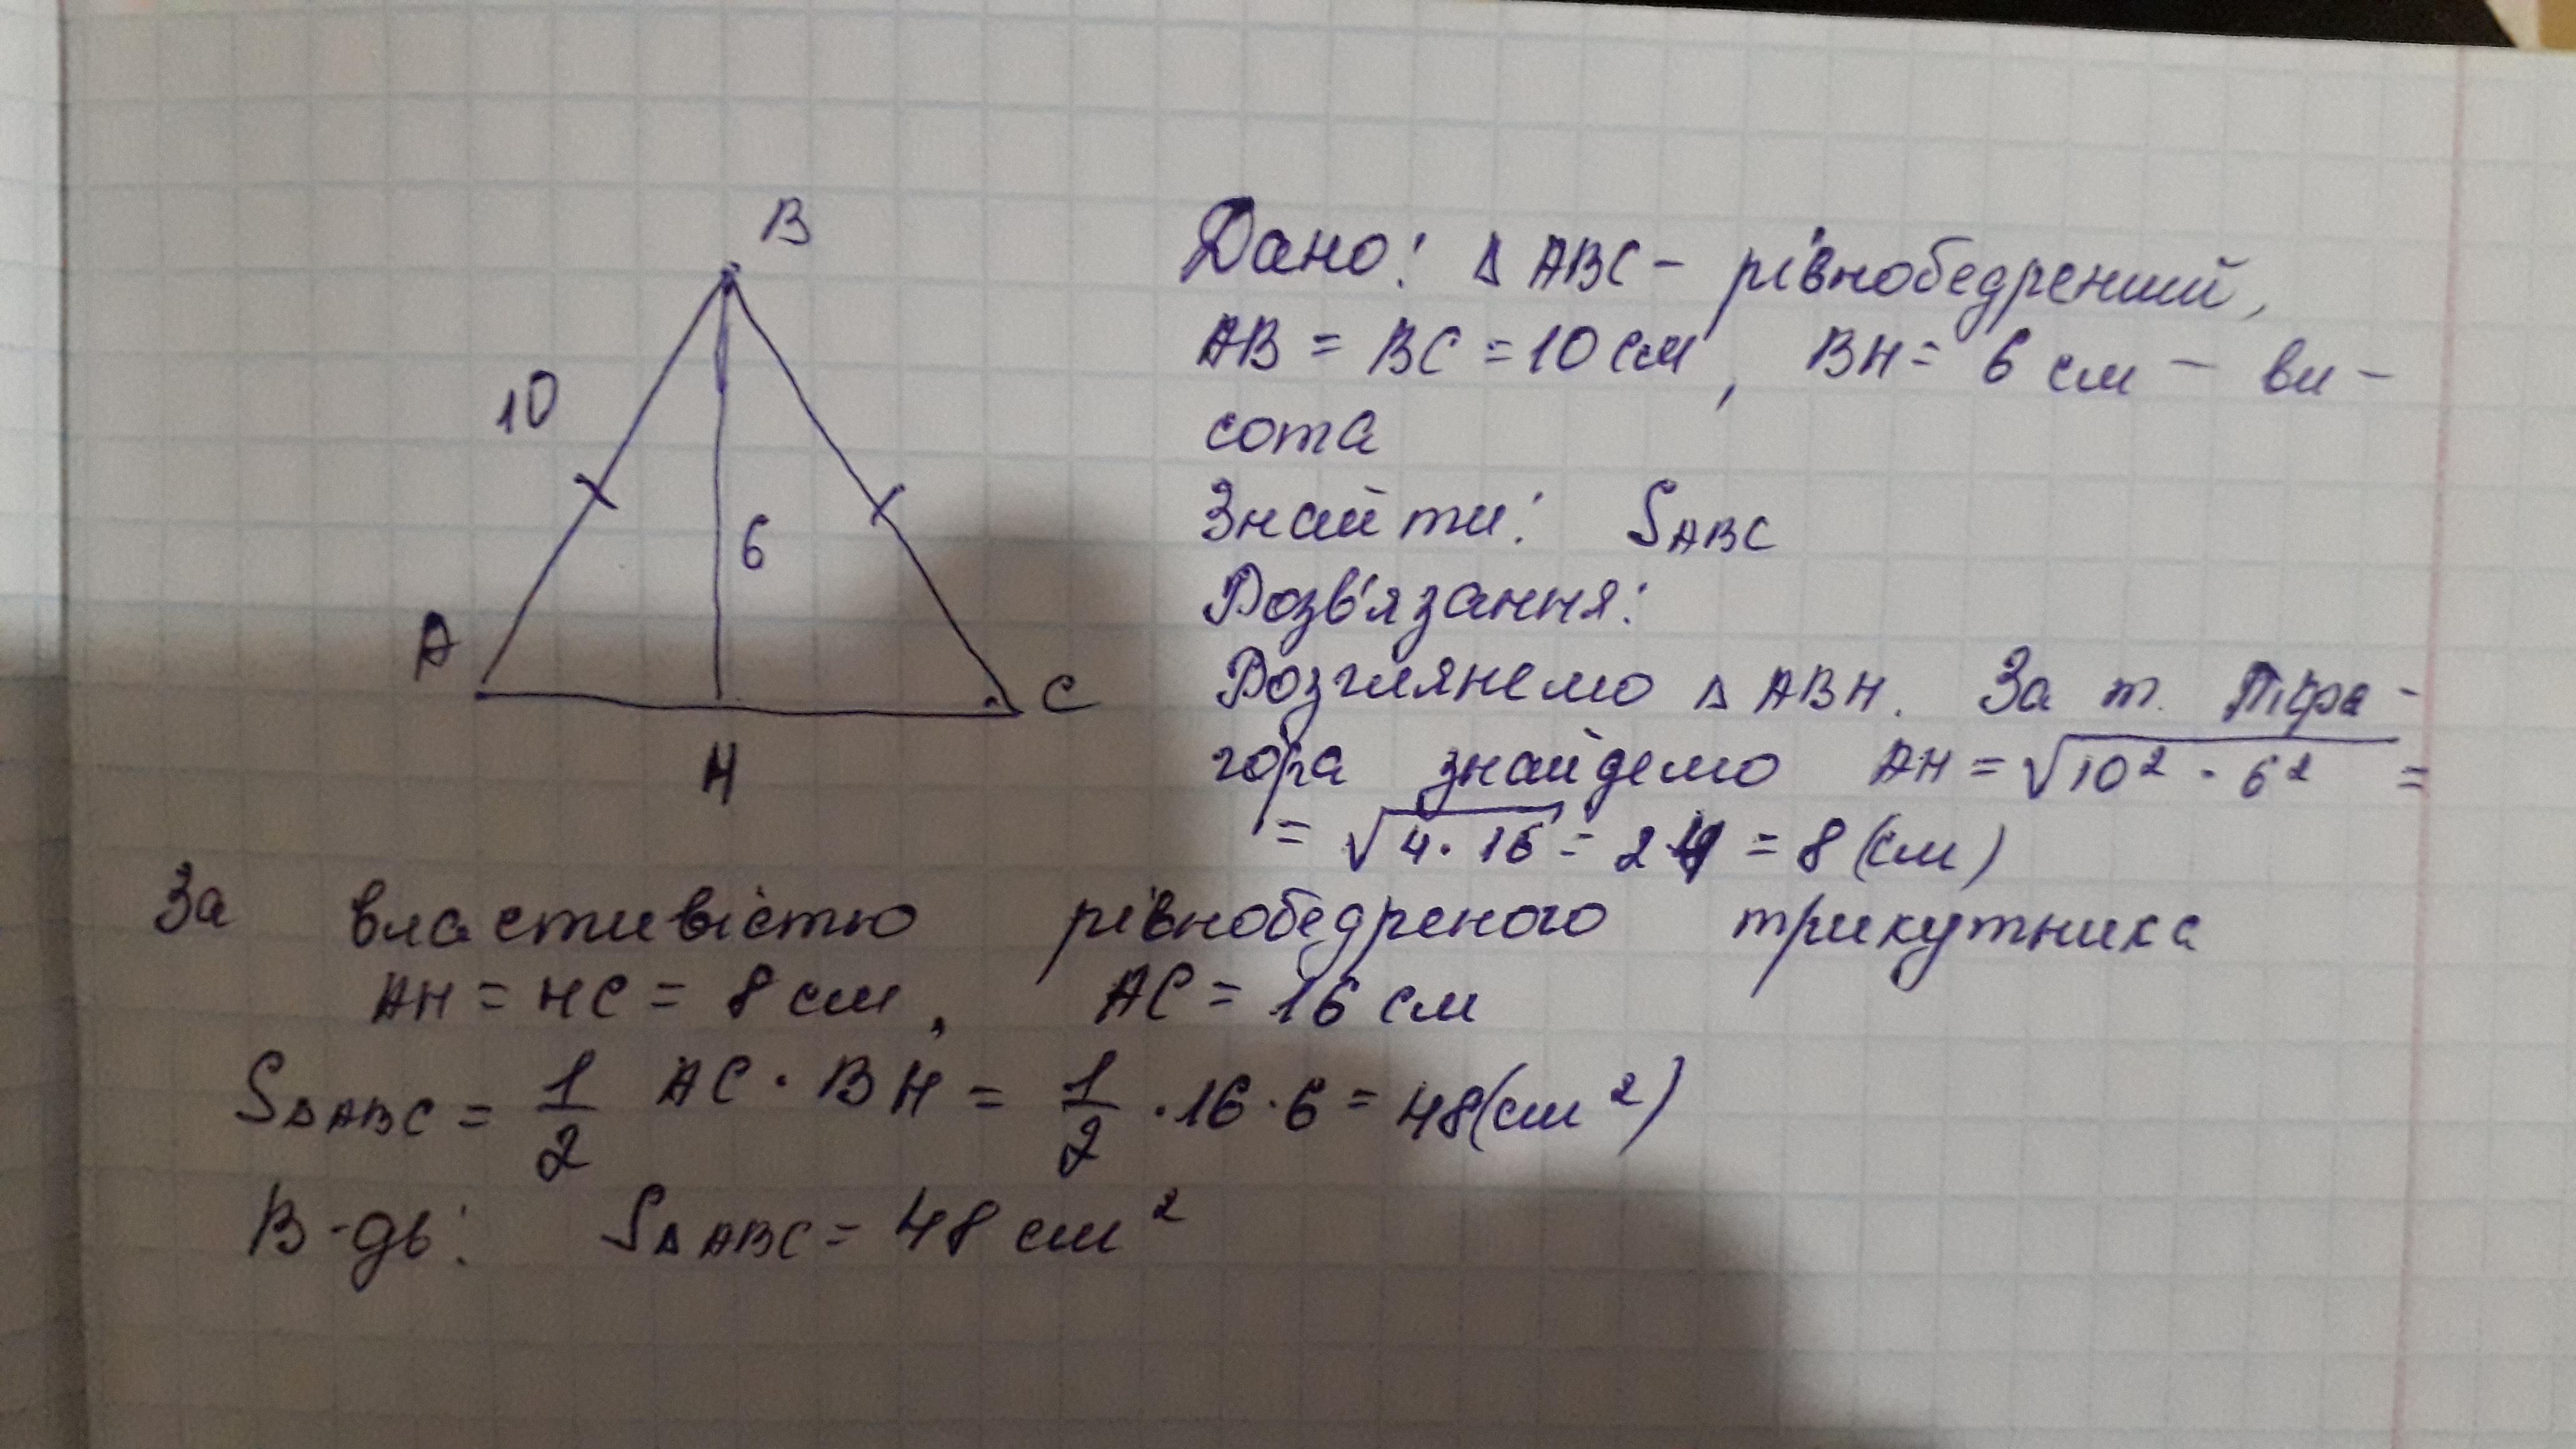 B
10
6
A
C
H
Дано: Δ ABC - рівнобедренний,
AB = BC = 10 см, BH = 6 см - ви-
сота
Знайти: S ABC
Розв'язання:
Розглянемо Δ ABH. За т. Піфа-
гора знайдемо AH = √10² - 6² =
= √4 · 16 = 2 4 = 8 (см)
За властивістю рівнобедреного трикутника
AH = HC = 8 см, AC = 16 см
SΔABC = 1/2 AC · BH = 1/2 · 16 · 6 = 48(см²)
В-дь: SΔABC = 48 см²